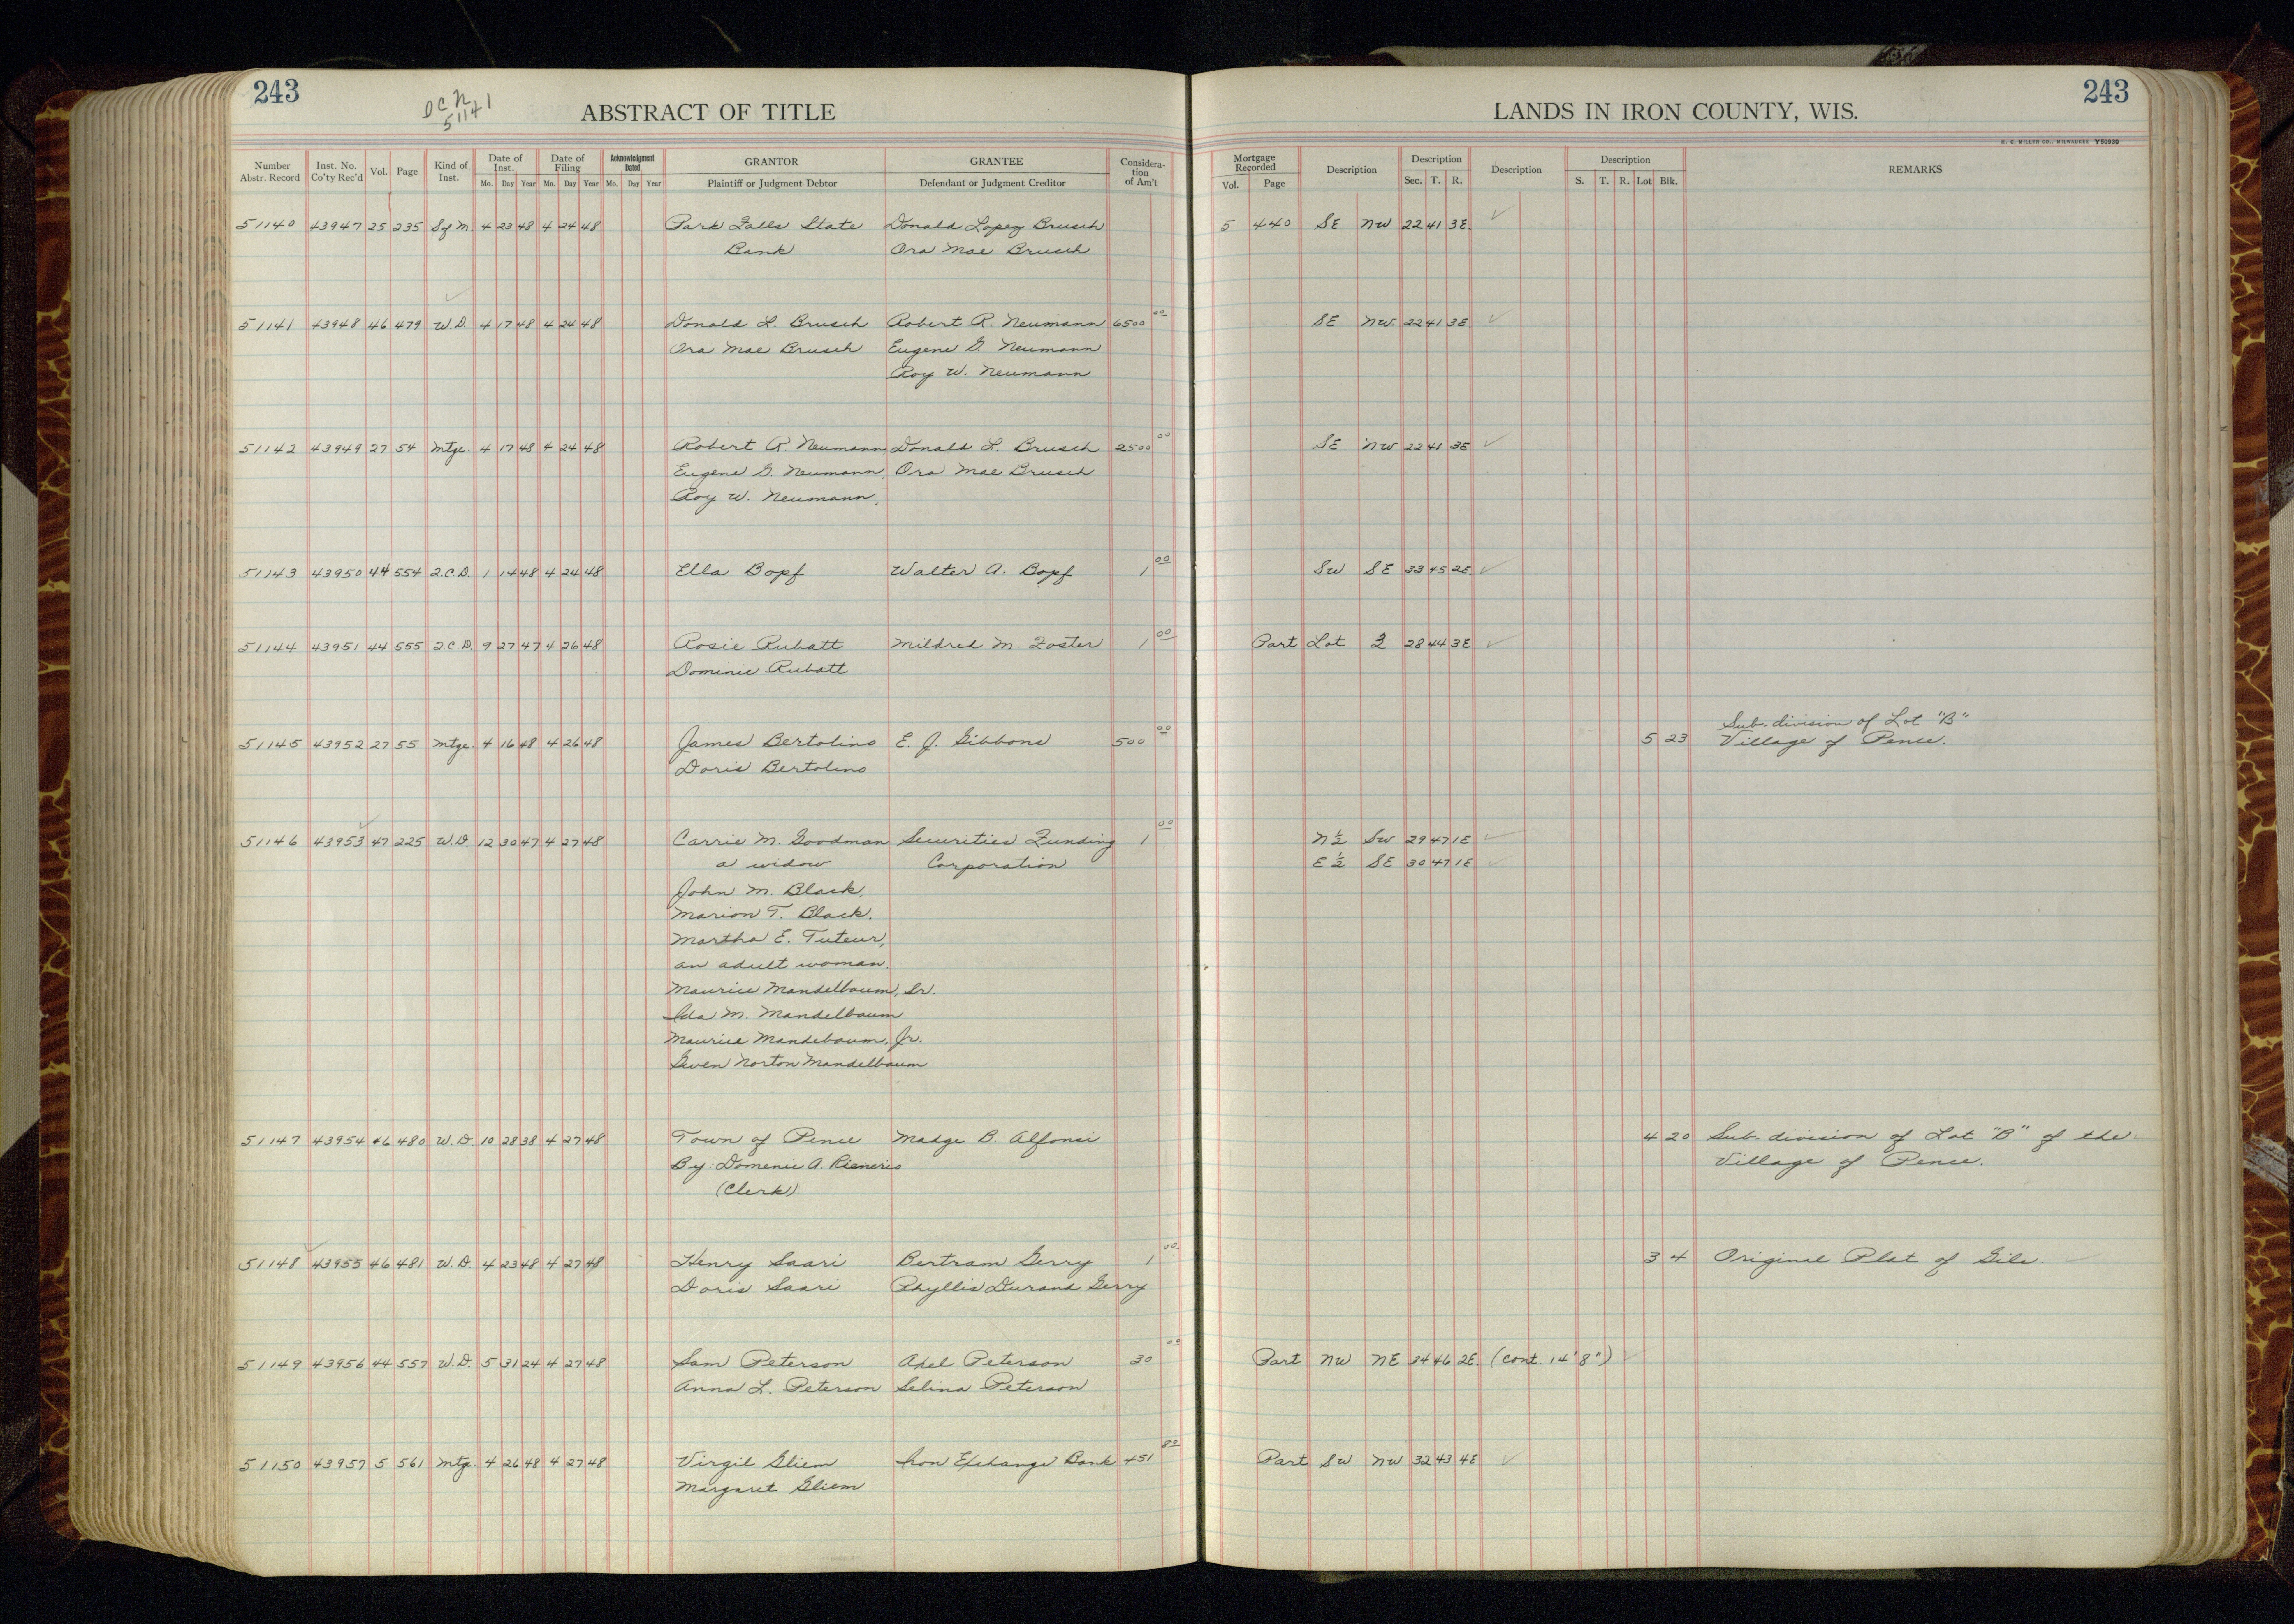 243
D C N
51141
ABSTRACT OF TITLE
LANDS IN IRON COUNTY, WIS.
243
H. C. MILLER CO., MILWAUKEE Y50930
Number Abstr. Record | Inst. No. Co'ty Rec'd | Vol. | Page | Kind of Inst. | Date of Inst. Mo. Day Year | Date of Filing Mo. Day Year | Acknowledgment Dated Mo. Day Year | GRANTOR Plaintiff or Judgment Debtor | GRANTEE Defendant or Judgment Creditor | Consideration of Am't | Mortgage Recorded Vol. Page | Description | Description Sec. T. R. | Description | Description S. T. R. Lot Blk. | REMARKS
51140 43947 25 235 Sf M. 4 23 48 4 24 48 Park Falls State Donald Lopez Brusch 5 440 SE NW 22 41 3E
Bank Ora Mae Brusch
51141 43948 46 479 W.D. 4 17 48 4 24 48 Donald L. Brusch Robert R. Neumann 6500 00 SE NW 22 41 3E
Ora Mae Brusch Eugene G. Neumann
Roy W. Neumann
51142 43949 27 54 Mtge. 4 17 48 4 24 48 Robert R. Neumann Donald L. Brusch 2500 00 SE NW 22 41 3E
Eugene G. Neumann, Ora Mae Brusch
Roy W. Neumann,
51143 43950 44 554 Q.C.D. 1 14 48 4 24 48 Ella Bopf Walter A. Bopf 1 00 SW SE 33 45 2E
51144 43951 44 555 Q.C.D. 9 27 47 4 26 48 Rosie Rubatt Mildred M. Foster 1 00 Part Lot 2 28 44 3E
Dominic Rubatt
51145 43952 27 55 Mtge. 4 16 48 4 26 48 James Bertolino E. J. Gibbons 500 00 5 23 Sub-division of Lot "B"
Doris Bertolino Village of Pence.
51146 43953 47 225 W.D. 12 30 47 4 27 48 Carrie M. Goodman Securities Funding 1 00 N½ SW 29 47 1E
a widow Corporation E½ SE 30 47 1E
John M. Black,
Marion T. Black.
Martha E. Tuteur,
an adult woman.
Maurice Mandelbaum, Sr.
Ida M. Mandelbaum
Maurice Mandebaum, Jr.
Gwen Norton Mandelbaum
51147 43954 46 480 W.D. 10 28 38 4 27 48 Town of Pence Madge B. Alfonsi 4 20 Sub-division of Lot "B" of the
By: Domenic A. Village of Pence.
(Clerk)
51148 43955 46 481 W.D. 4 23 48 4 27 48 Henry Saari Bertram Gerry 1 00 3 4 Original Plat of Gile.
Doris Saari Phyllis Durand Gerry
51149 43956 44 557 W.D. 5 31 24 4 27 48 Sam Peterson Axel Peterson 30 00 Part NW NE 34 46 2E. (cont. 14'8")
Anna L. Peterson Selina Peterson
51150 43957 5 561 Mtg. 4 26 48 4 27 48 Virgil Gliem Iron Exchange Bank 451 80 Part SW NW 32 43 4E
Margaret Gliem